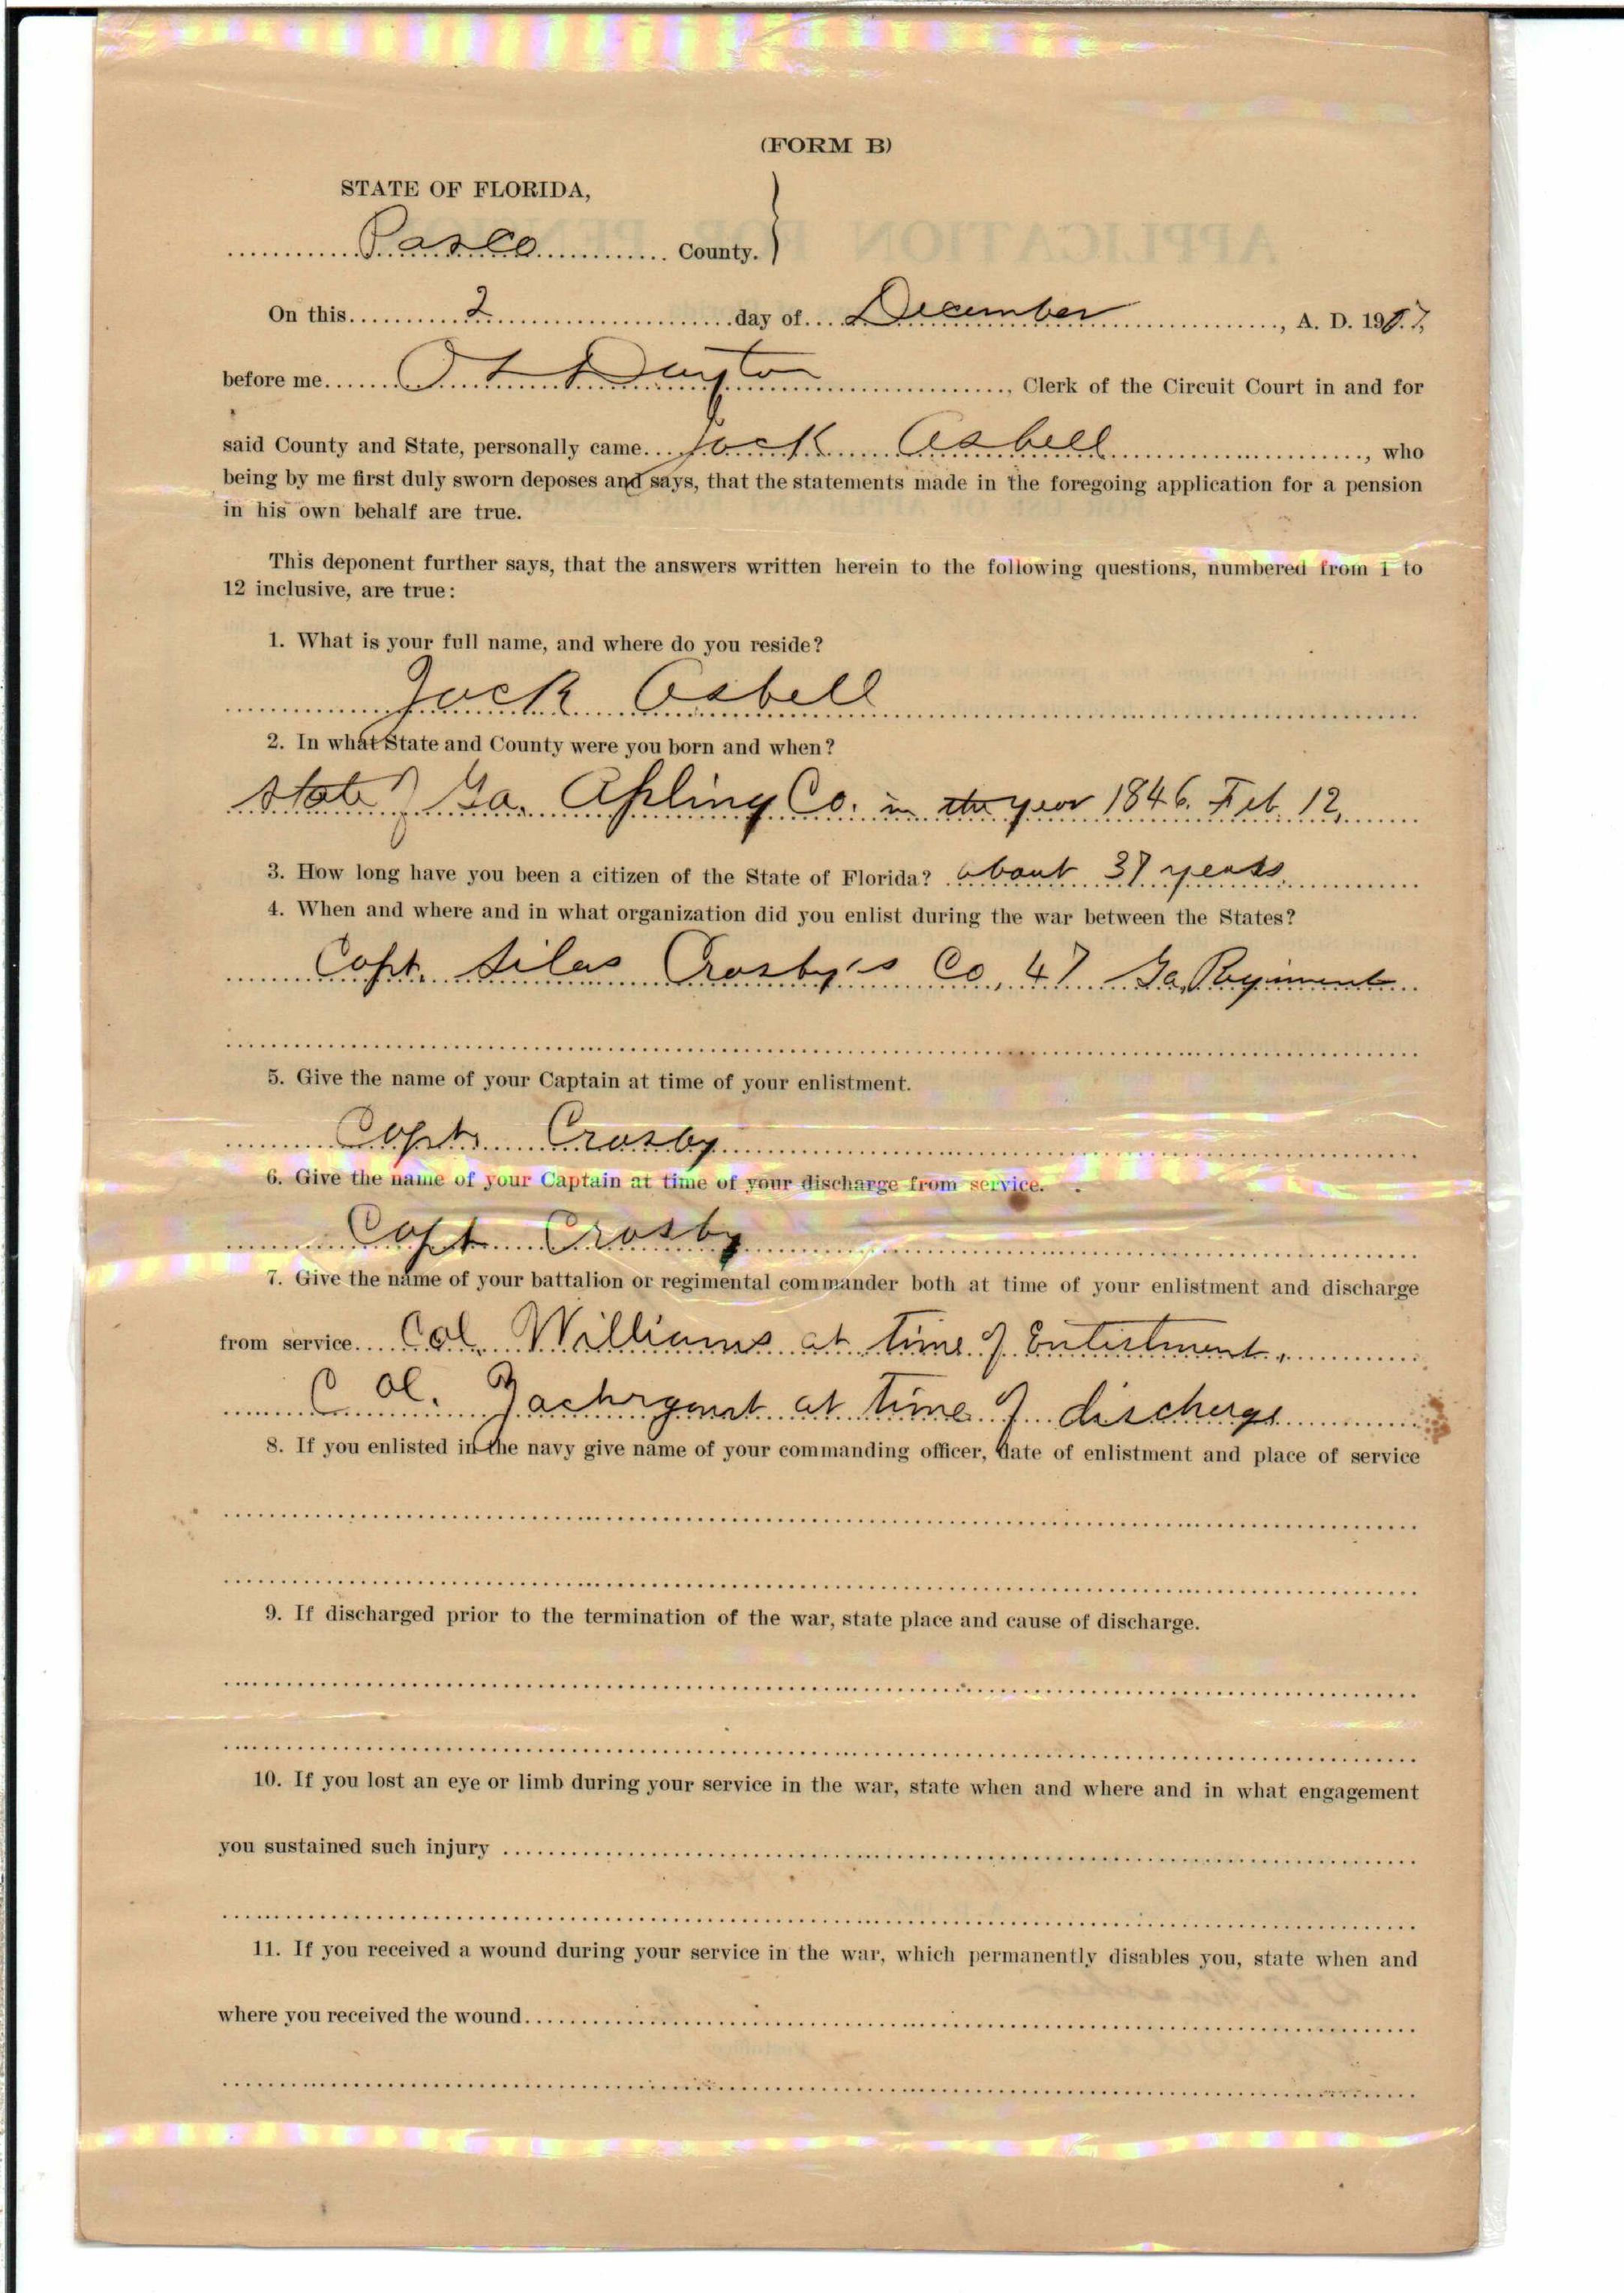 (FORM B)
STATE OF FLORIDA,
Pasco County.
On this 2 day of December, A. D. 1907,
before me O L Dayton, Clerk of the Circuit Court in and for
said County and State, personally came Jack Asbell, who
being by me first duly sworn deposes and says, that the statements made in the foregoing application for a pension
in his own behalf are true.
This deponent further says, that the answers written herein to the following questions, numbered from 1 to
12 inclusive, are true:
1. What is your full name, and where do you reside?
Jack Asbell
2. In what State and County were you born and when?
State of Ga. Apling Co. in the year 1846. Feb. 12,
3. How long have you been a citizen of the State of Florida? about 37 years.
4. When and where and in what organization did you enlist during the war between the States?
Capt. Silas Crosby's Co, 47 Ga, Regiment
5. Give the name of your Captain at time of your enlistment.
Capt. Crosby
6. Give the name of your Captain at time of your discharge from service.
Capt Crosby
7. Give the name of your battalion or regimental commander both at time of your enlistment and discharge
from service Col. Williams at time of Entistment,
Col. at time of discharge
8. If you enlisted in the navy give name of your commanding officer, date of enlistment and place of service
9. If discharged prior to the termination of the war, state place and cause of discharge.
10. If you lost an eye or limb during your service in the war, state when and where and in what engagement
you sustained such injury
11. If you received a wound during your service in the war, which permanently disables you, state when and
where you received the wound